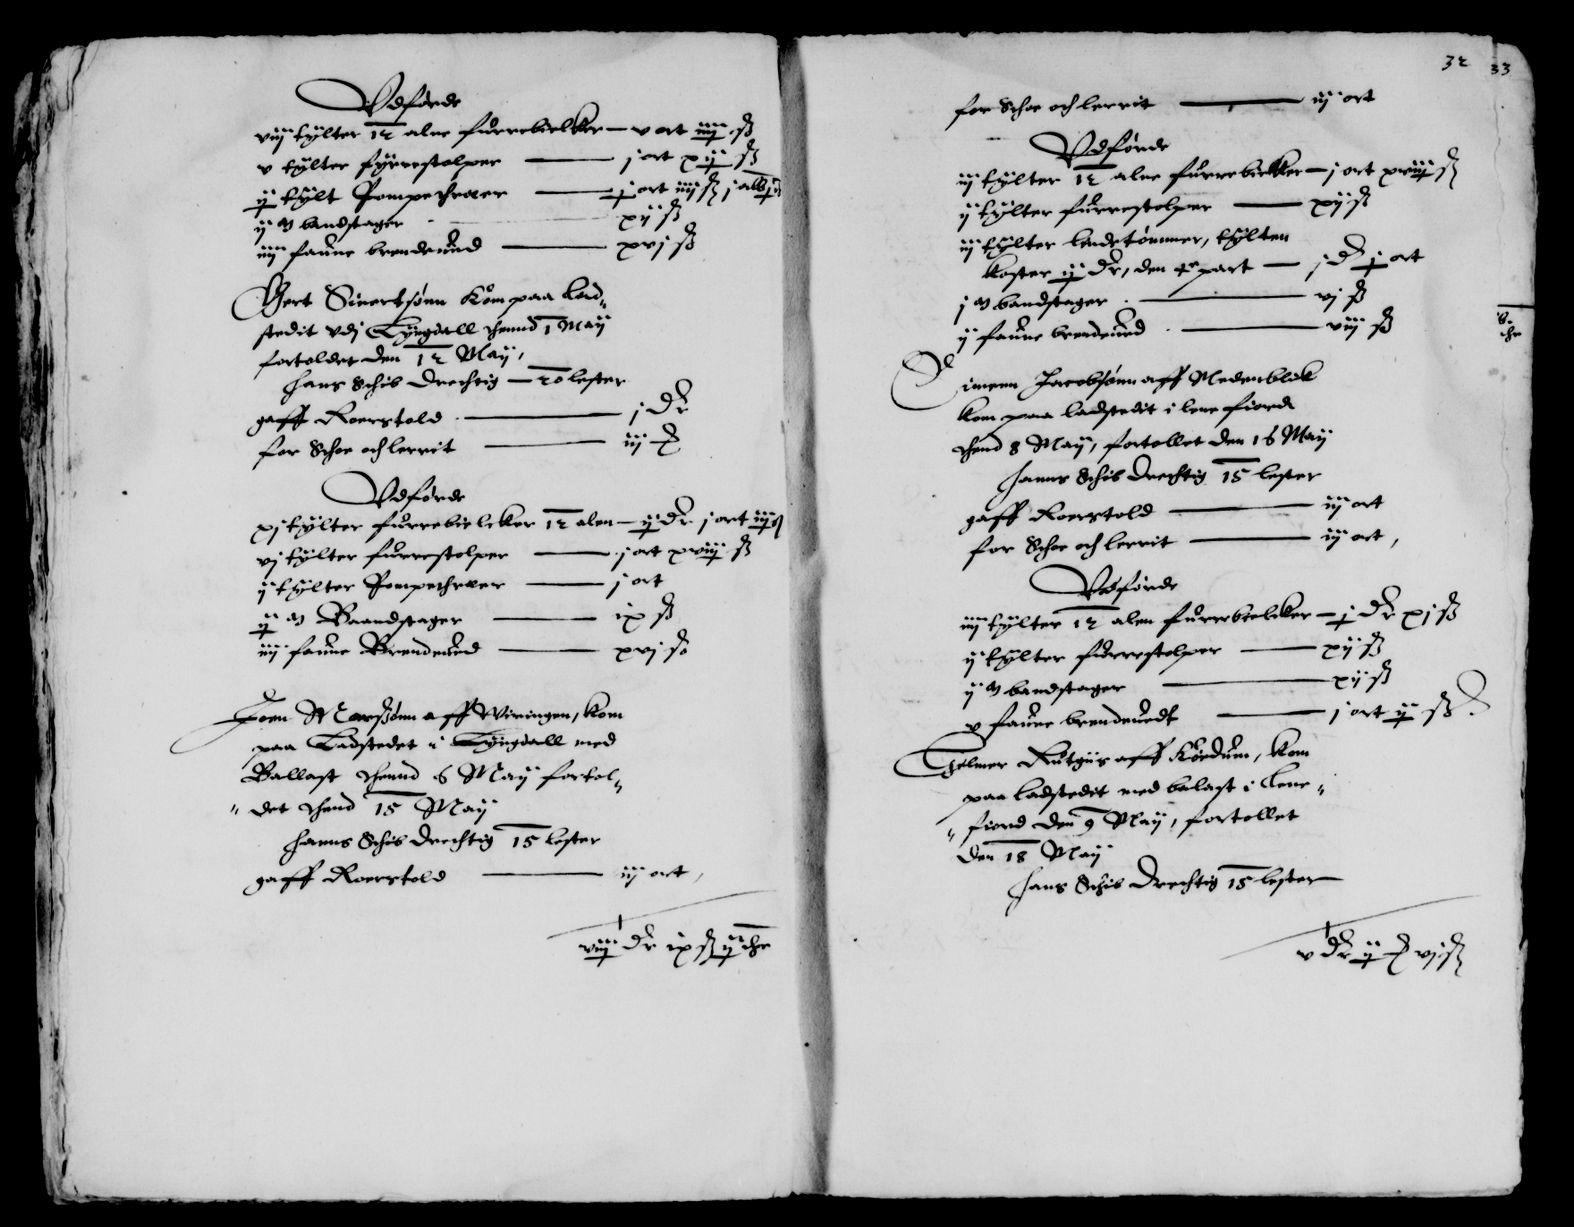 Vdførde
viij tylter 12 alne furrebielcker — v ort iiij ß
v tylter fyrrestolper — j ort xij ß
ij tylt Pompethræer — j ort iiij ß j alb
ij M bandstager — xij ß
iiij faune brendeued — xvj ß
Gert Siuertsønn Kom paa Lad„
stedit vdj Lyngdall thennd 1 May
fortoldet den 12 May,
Hans Schib Drechtig — 20 lester
gaff Roerstold — j Dr
for Schoe och lerrit — iij
Vdførde
xj tylter furrebielcker 12 alen — ij Dr j ort iiij ß
vj tylter furrestolper — j ort xviij ß
ij tylter Pompethræer — j ort
ij M Baandstager — ix ß
iiij faune Brendeued — xvj ß
Joen Marssønn aff Wiringen, kom
paa Ladstedet i Lyngdall med
Ballast thennd 6 May fortol„
„ det thend 15 May
Hanns Schib Drechtig 15 lester
gaff Roerstold — iij ort,
viij Dr ix ß ij
32
33
for Schoe och lerrit — iij ort
Vdførde
iij tylter 12 alne furrebielcker — j ort xviij ß
ij tylter furrestolper — xij ß
iij tylter lendetømmer, tylten
koster ij Dr, den part — j D j ort
j M bandstager — vj ß
ij faune brendeued — viij ß
Simenn Jacobssønn aff Medenblick
kom paa ladstedit i lene fiord
thend 8 May, fortollet den 16 May
Hanns Schib Drechtig 15 lester
gaff Roerstold — iij ort
for Schoe och lerrit — iij ort,
Vdførde
iiij tylter 12 alen furrebielcker — j Dr xj ß
ij tylter furrestolper — xij ß
ij M bandstager — xij ß
v faune brendeuedt — j ort ij ß
Tielmer Rutgiis aff Kordum, kom
paa ladstedit med balast i Lene„
„ fiord den 9 May, fortollet
den 18 May
Hans Schib Drechtig 15 lester
v Dr ij vj ß